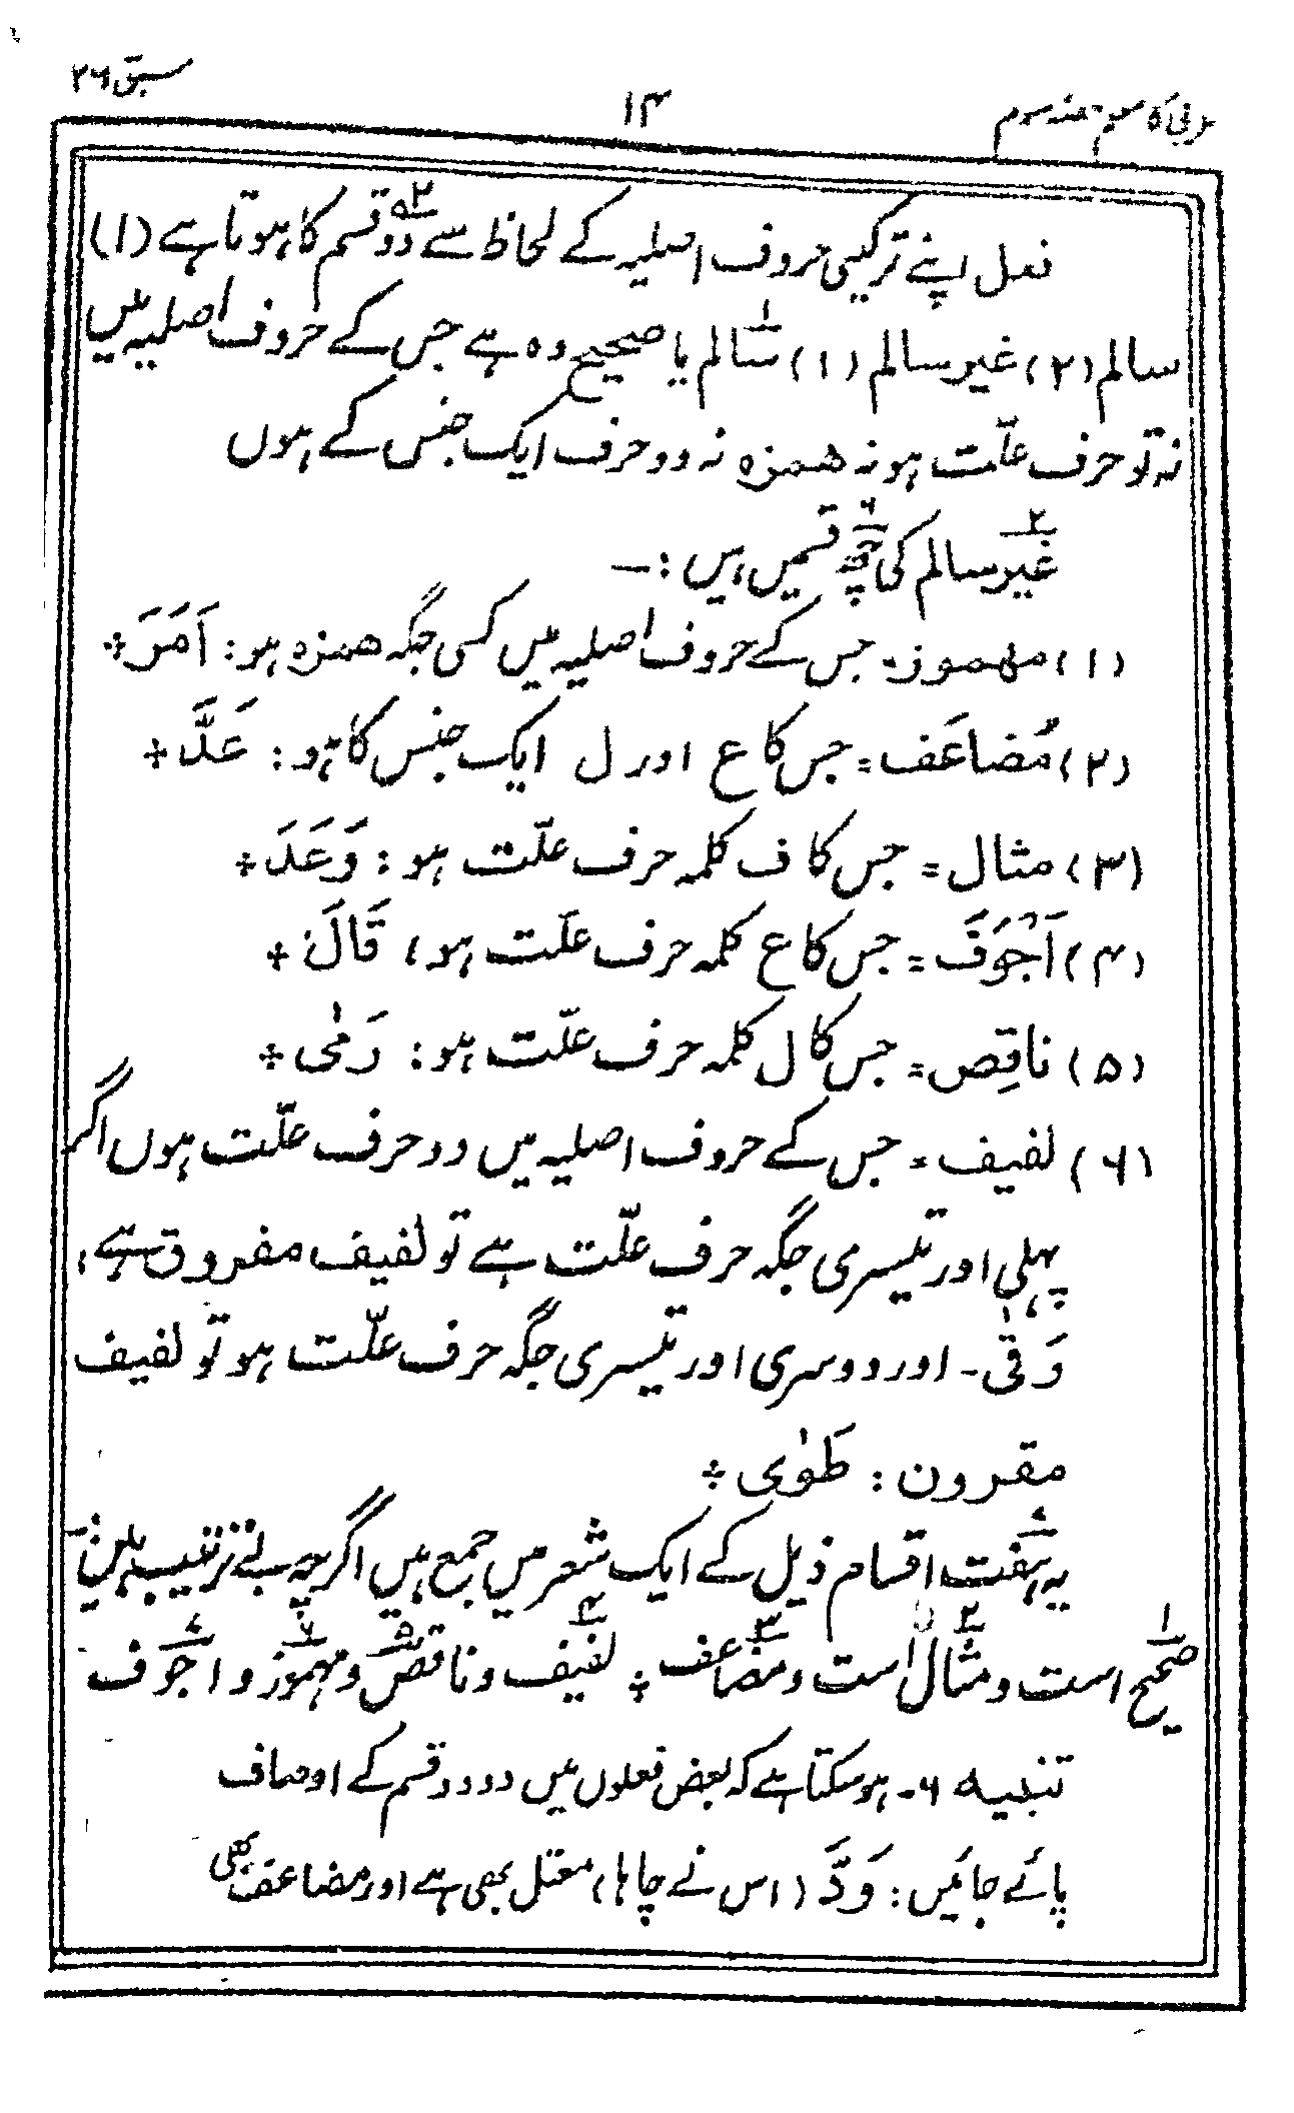 عربی کا معلم حصہ سوم ۱۴ سبق ۲۶
فعل اپنے ترکیبی حروف اصلیہ کے لحاظ سے دو۲ قسم کا ہوتا ہے (۱)
سالم (۲) غیر سالم (۱) سالم یا صحیح وہ ہے جس کے حروف اصلیہ میں
نہ تو حرف علّت ہو نہ ہمزہ نہ دو حرف ایک جنس کے ہوں
۲ غیر سالم کی چھ۶ قسمیں ہیں :—
(۱) مہموز = جس کے حروف اصلیہ میں کسی جگہ ہمزہ ہو : اَمَرَ ÷
(۲) مُضاعَف = جس کا ع اور ل ایک جنس کا ہو : عَدَّ ÷
(۳) مثال = جس کا ف کلمہ حرف علّت ہو : وَعَدَ ÷
(۴) اَجْوَفَ = جس کا ع کلمہ حرف علّت ہو، قَالَ ÷
(۵) ناقِص = جس کا ل کلمہ حرف علّت ہو : رَمٰی ÷
(۶) لفیف = جس کے حروف اصلیہ میں دو حرف علّت ہوں اگر
پہلی اور تیسری جگہ حرف علّت ہے تو لفیف مفروق ہے :
وَقٰی۔ اور دوسری اور تیسری جگہ حرف علّت ہو تو لفیف
مقرون : طَوٰی ÷
یہ ہفت۷ اقسام ذیل کے ایک شعر میں جمع ہیں اگرچہ بے ترتیب ہیں :
صحیح۱ است و مثال۲ است و مضاعف۳ ÷ لفیف۴ و ناقص۵ و مہموز۶ و اجوف۷
تنبیہ ۶۔ ہو سکتا ہے کہ بعض فعلوں میں دو دو قسم کے اوصاف
پائے جائیں : وَدَّ (اس نے چاہا) معتل بھی ہے اور مضاعف بھی